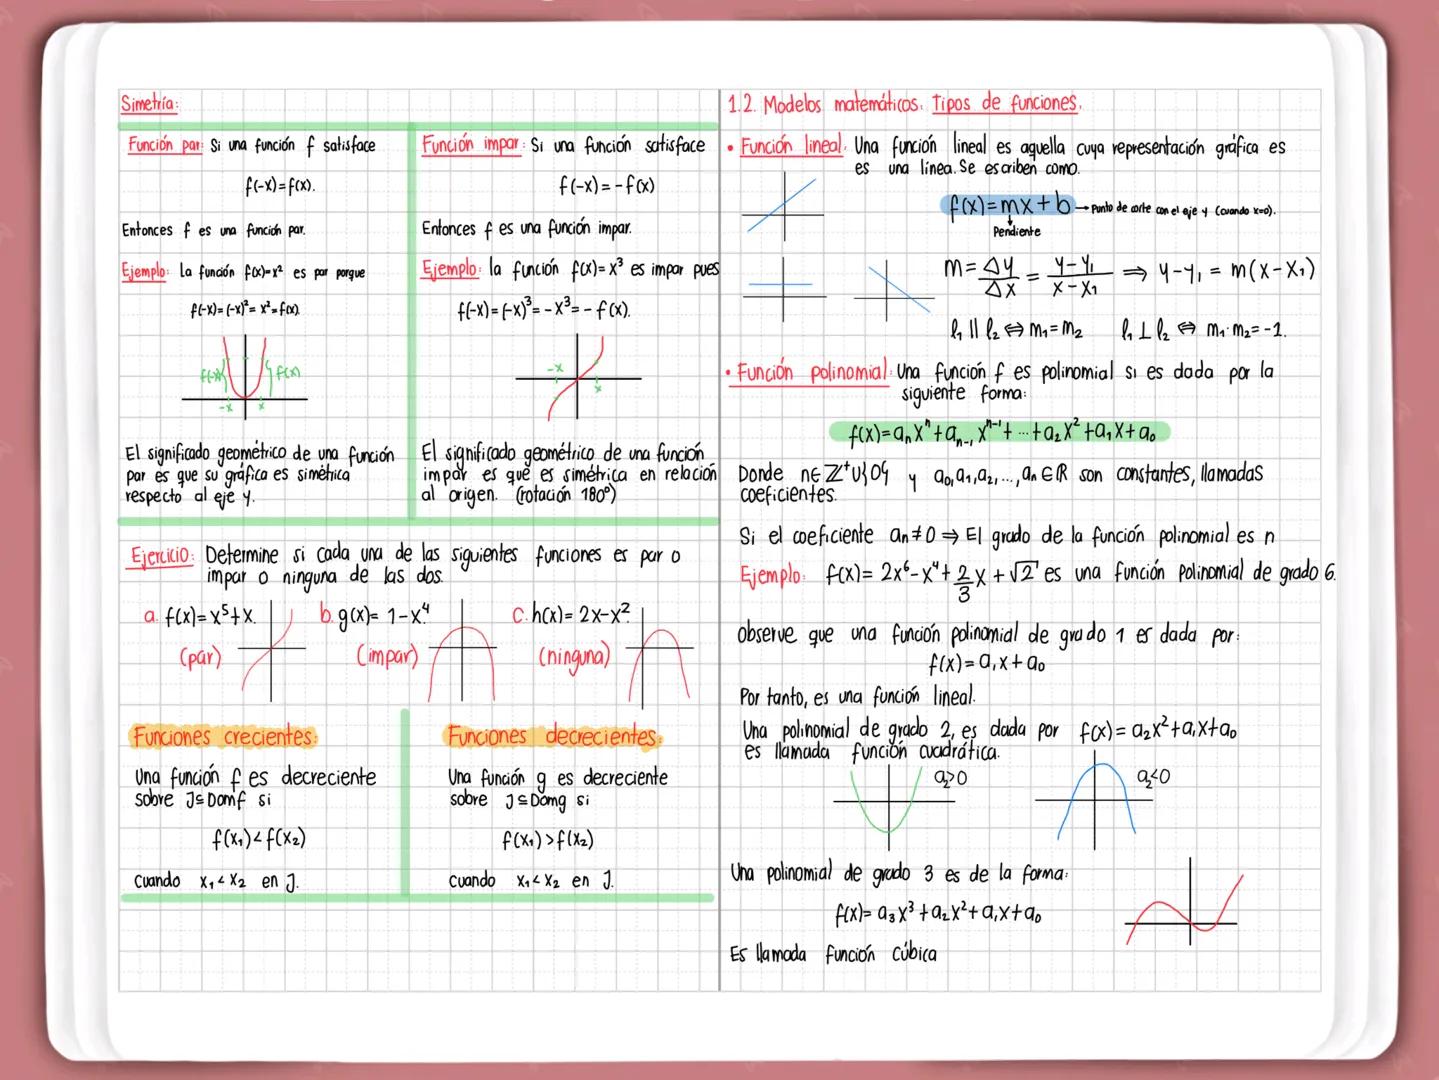 Simetría:
Función par: Si una función f satisface
f(-x)=f(x).
Entonces f es una función par.
Ejemplo: La función f(x)=x² es par porque
f(-x)=(-x)²= x²=f(x).
f(-x)
f(x)
-x
x
El significado geométrico de una función
par es que su gráfica es simétrica
respecto al eje y.
Función impar: Si una función satisface
f(-x) = -f(x)
Entonces f es una función impar.
Ejemplo: la función f(x)= x³ es impar pues
f(-x)=(-x)³= -x³= -f(x).
-x
x
El significado geométrico de una función
impar es que es simétrica en relación
al origen. (rotación 180°)
Ejercicio: Determine si cada una de las siguientes funciones es par o
impar o ninguna de las dos.
a. f(x)=x⁵+x.
b. g(x)= 1-x⁴.
c. h(x)= 2x-x².
(par)
(impar)
(ninguna)
Funciones crecientes:
Una función f es decreciente
sobre J⊆Domf si
f(x₁)<f(x₂)
cuando x₁<x₂ en J.
Funciones decrecientes:
Una función g es decreciente
sobre J⊆Domg si
f(x₁)>f(x₂)
cuando x₁<x₂ en J.
1.2. Modelos matemáticos: Tipos de funciones.
• Función lineal: Una función lineal es aquella cuya representación gráfica es
es una línea. Se escriben como.
f(x)=mx+b → Punto de corte con el eje y (cuando x=0).
↓
Pendiente
m= Δy/Δx = y-y₁/x-x₁ ⇒ y-y₁ = m(x-x₁)
l₁ || l₂ ⇔ m₁=m₂ l₁ ⊥ l₂ ⇔ m₁·m₂=-1.
• Función polinomial: Una función f es polinomial si es dada por la
siguiente forma:
f(x)=aₙxⁿ+aₙ₋₁xⁿ⁻¹+...+a₂x²+a₁x+a₀
Donde n∈Z⁺∪{0} y a₀,a₁,a₂,...,aₙ∈ℝ son constantes, llamadas
coeficientes.
Si el coeficiente aₙ≠0 ⇒ El grado de la función polinomial es n
Ejemplo: f(x)= 2x⁶-x⁴+2/3x+√2 es una función polinomial de grado 6.
observe que una función polinomial de grado 1 es dada por:
f(x)=a₁x+a₀
Por tanto, es una función lineal.
Una polinomial de grado 2, es dada por f(x)= a₂x²+a₁x+a₀
es llamada función cuadrática.
a₂>0
a₂<0
Una polinomial de grado 3 es de la forma:
f(x)= a₃x³+a₂x²+a₁x+a₀
Es llamada función cúbica